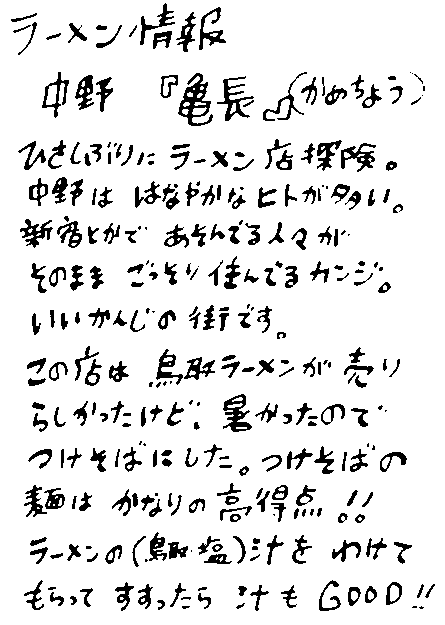 ラーメン情報
中野 『亀長』(かめちょう)
ひさしぶりに ラーメン店探険。
中野は はなやかなヒトが多い。
新宿とかで あそんでる人々が
そのまま ごっそり住んでるカンジ。
いいかんじの街です。
この店は 鳥取ラーメンが売り
らしかったけど、暑かったので
つけそばにした。つけそばの
麺は かなりの高得点!!
ラーメンの(鳥取塩)汁を わけて
もらって すすったら 汁も GOOD!!